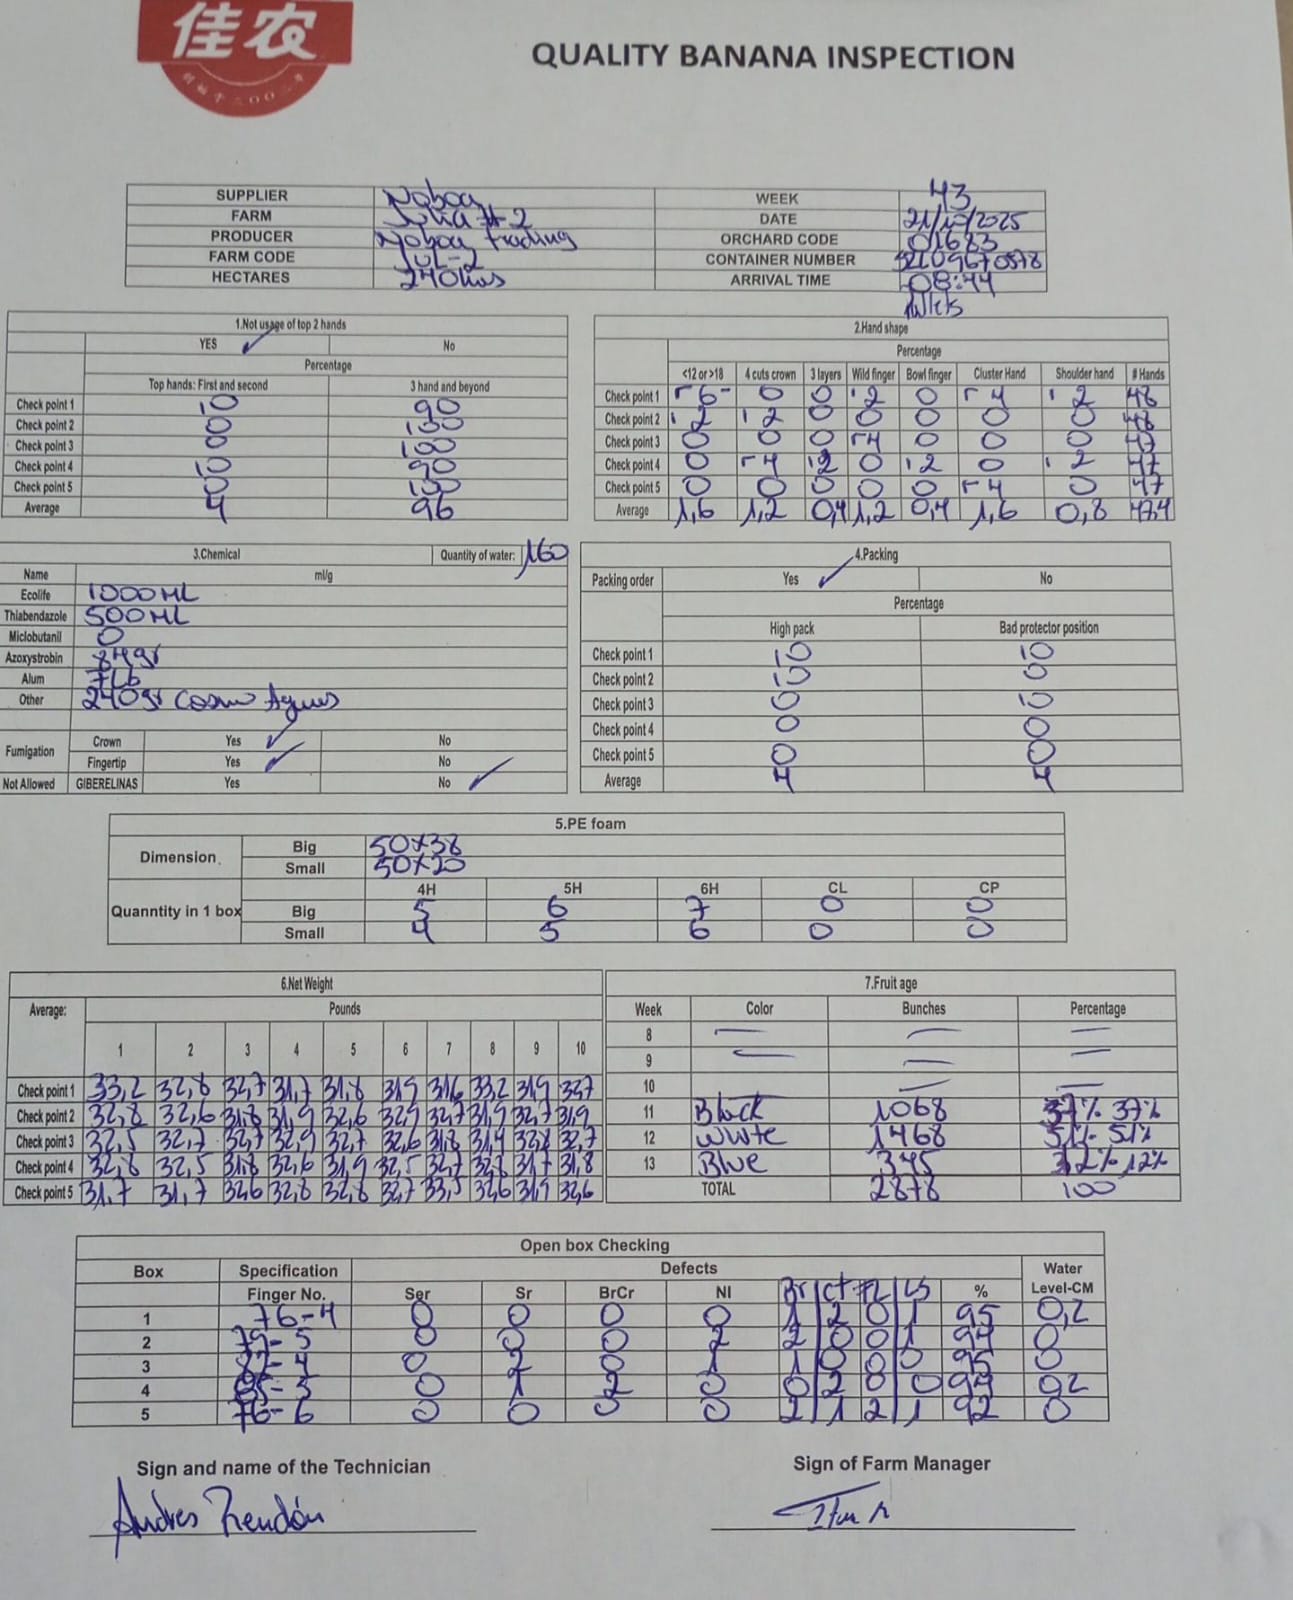 佳农
QUALITY BANANA INSPECTION
SUPPLIER Noboa WEEK 43
FARM Julia #2 DATE 21/10/2025
PRODUCER Noboa trading ORCHARD CODE 01683
FARM CODE JUL-2 CONTAINER NUMBER
HECTARES 240has ARRIVAL TIME 08:44
1.Not usage of top 2 hands
YES ✓ No
Percentage
Top hands: First and second 3 hand and beyond
Check point 1 10 90
Check point 2 0 100
Check point 3 0 100
Check point 4 10 90
Check point 5 0 100
Average 4 96
2.Hand shape
Percentage
<12 or >18 4 cuts crown 3 layers Wild finger Bowl finger Cluster Hand Shoulder hand # Hands
Check point 1 6 0 0 2 0 4 2 48
Check point 2 2 2 0 0 0 0 0 48
Check point 3 0 0 0 4 0 0 0 47
Check point 4 0 4 2 0 2 0 2 47
Check point 5 0 0 0 0 0 4 0 47
Average 1,6 1,2 0,4 1,2 0,4 1,6 0,8 47,4
3.Chemical Quantity of water: 160
Name ml/g
Ecolife 1000ML
Thiabendazole 500ML
Miclobutanil 0
Azoxystrobin 84gr
Alum 7Lb
Other 240gr Cosmo Aguas
Fumigation Crown Yes ✓ No
Fingertip Yes ✓ No
Not Allowed GIBERELINAS Yes No ✓
4.Packing
Packing order Yes ✓ No
Percentage
High pack Bad protector position
Check point 1 10 10
Check point 2 10 0
Check point 3 0 10
Check point 4 0 0
Check point 5 0 0
Average 4 4
5.PE foam
Dimension Big 50x38
Small 50x20
4H 5H 6H CL CP
Quanntity in 1 box Big 5 6 7 0 0
Small 4 5 6 0 0
6.Net Weight
Average: Pounds
1 2 3 4 5 6 7 8 9 10
Check point 1 33,2 32,8 32,7 31,7 31,8 31,9 31,6 33,2 31,9 32,7
Check point 2 32,8 32,6 31,8 31,9 32,6 32,9 32,7 31,9 32,7 31,9
Check point 3 32,5 32,7 32,7 32,9 32,7 32,6 31,8 31,4 32,8 32,7
Check point 4 32,8 32,5 31,8 32,6 31,9 32,5 32,7 32,8 31,7 31,8
Check point 5 31,7 31,7 32,6 32,8 32,8 32,7 33,5 32,6 31,9 32,6
7.Fruit age
Week Color Bunches Percentage
8 — — —
9 — — —
10 — —
11 Black 1068 37% 37%
12 White 1468 51% 51%
13 Blue 345 12% 12%
TOTAL 2878 100
Open box Checking
Box Specification Defects Water
Finger No. Ser Sr BrCr NI Br Ct FL LS % Level-CM
1 76-4 0 0 0 0 1 2 0 1 95 0,2
2 79-5 0 0 0 2 2 0 0 1 94 0
3 82-4 0 2 0 1 1 0 0 0 95 0
4 85-3 0 1 2 0 0 2 0 0 94 02
5 76-6 0 0 0 0 2 1 2 1 92 0
Sign and name of the Technician Sign of Farm Manager
Andres Rendón